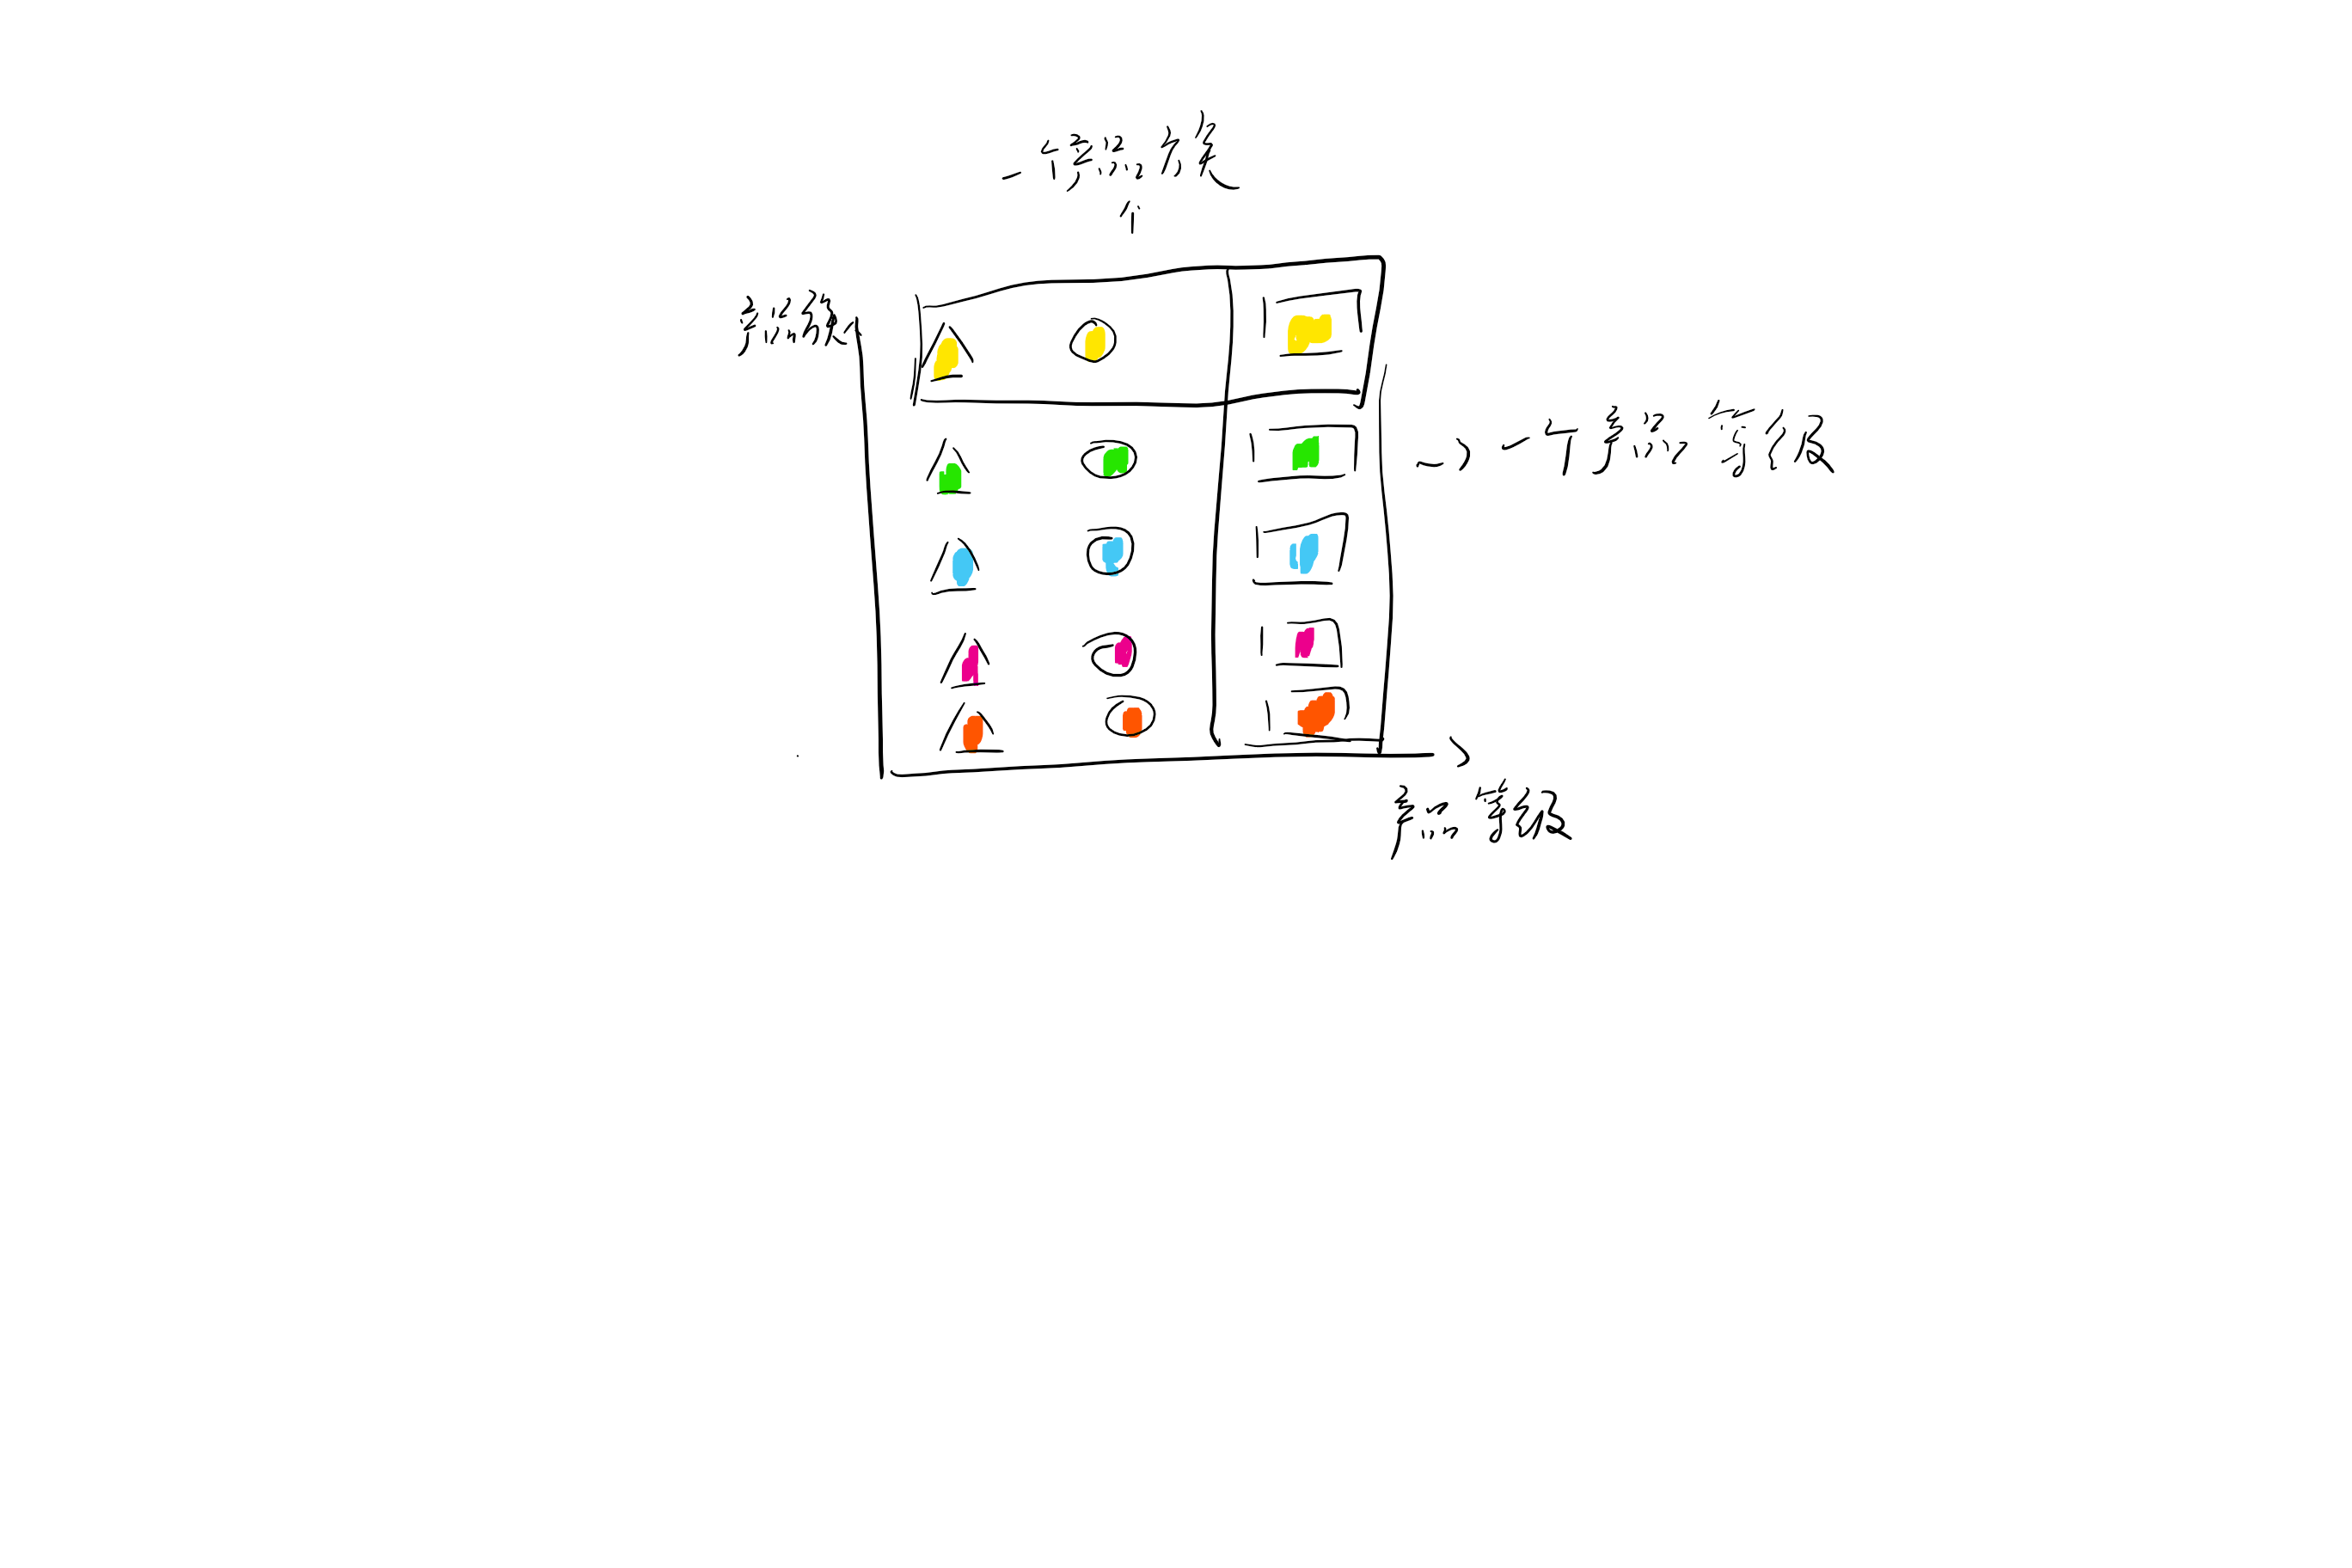 一个产品族
产品族
一个产品等级
产品等级